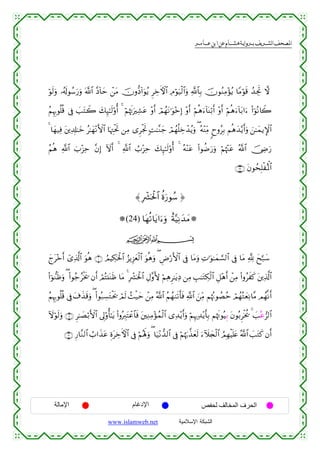 المصحف الشريف برواية هشام عن ابن عامر
لَّا تَجِدُ قَوْمًا يُؤْمِنُونَ بِٱللَّهِ وَٱلْيَوْمِ ٱلْأَخِرِ يُوَآدُّونَ مَنْ حَآدَّ ٱللَّهَ وَرَسُولَهُۥ وَلَوْ
كَانُوٓا۟ ءَابَآءَهُمْ أَوْ أَبْنَآءَهُمْ أَوْ إِخْوَٰنَهُمْ أَوْ عَشِيرَتَهُمْ ۚ أُو۟لَٰٓئِكَ كَتَبَ فِى قُلُوبِهِمُ
ٱلْإِيمَٰنَ وَأَيَّدَهُم بِرُوحٍ مِّنْهُ ۖ وَيُدْخِلُهُمْ جَنَّٰتٍ تَجْرِى مِن تَحْتِهَا ٱلْأَنْهَٰرُ خَٰلِدِينَ فِيهَا ۚ
رَضِىَ ٱللَّهُ عَنْهُمْ وَرَضُوا۟ عَنْهُ ۚ أُو۟لَٰٓئِكَ حِزْبُ ٱللَّهِ ۚ أَلَآ إِنَّ حِزْبَ ٱللَّهِ هُمُ
ٱلْمُفْلِحُونَ
﴿ سُورَةُ ٱلْحَشْرِ ﴾
* مَدَنِيَّةٌ وَءَايَاتُهَا (24) *
بِسْمِ ٱللَّهِ ٱلرَّحْمَٰنِ ٱلرَّحِيمِ
سَبَّحَ لِلَّهِ مَا فِى ٱلسَّمَٰوَٰتِ وَمَا فِى ٱلْأَرْضِ ۖ وَهُوَ ٱلْعَزِيزُ ٱلْحَكِيمُ هُوَ ٱلَّذِىٓ أَخْرَجَ
ٱلَّذِينَ كَفَرُوا۟ مِنْ أَهْلِ ٱلْكِتَٰبِ مِن دِيَٰرِهِمْ لِأَوَّلِ ٱلْحَشْرِ ۚ مَا ظَنَنتُمْ أَن يَخْرُجُوا۟ ۖ وَظَنُّوٓا۟
أَنَّهُم مَّانِعَتُهُمْ حُصُونُهُم مِّنَ ٱللَّهِ فَأَتَىٰهُمُ ٱللَّهُ مِنْ حَيْثُ لَمْ يَحْتَسِبُوا۟ ۖ وَقَذَفَ فِى قُلُوبِهِمُ
ٱلرُّعُبَ ۚ يُخْرِبُونَ بِيُوتَهُم بِأَيْدِيهِمْ وَأَيْدِى ٱلْمُؤْمِنِينَ فَٱعْتَبِرُوا۟ يَٰٓأُو۟لِى ٱلْأَبْصَٰرِ وَلَوْلَآ
أَن كَتَبَ ٱللَّهُ عَلَيْهِمُ ٱلْجَلَآءَ لَعَذَّبَهُمْ فِى ٱلدُّنْيَا ۖ وَلَهُمْ فِى ٱلْأَخِرَةِ عَذَابُ ٱلنَّارِ
الحرف المخالف لحفص الإدغام الإمالة
الشبكة الإسلامية www.islamweb.net